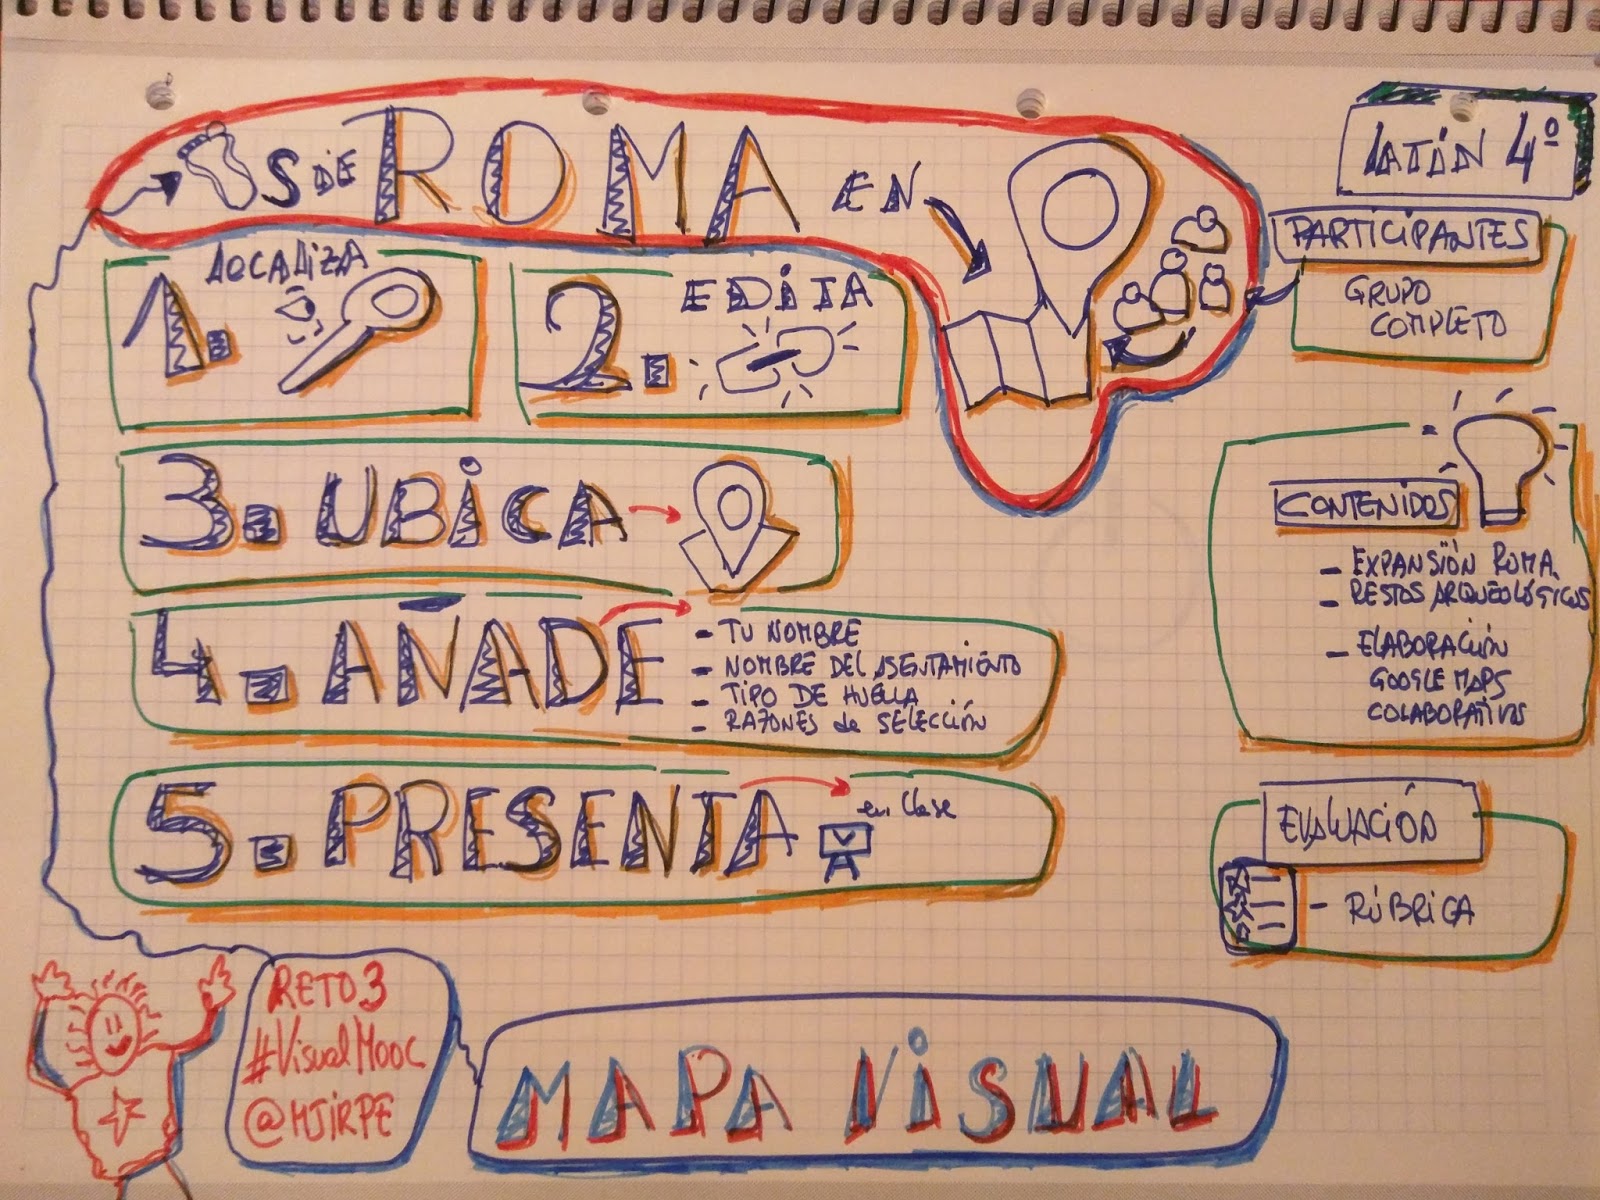 S DE ROMA EN
LATÍN 4º
PARTICIPANTES
GRUPO
COMPLETO
1. LOCALIZA
2. EDITA
3. UBICA
4. AÑADE
- TU NOMBRE
- NOMBRE DEL ASENTAMIENTO
- TIPO DE HUELLA
- RAZONES de SELECCIÓN
5. PRESENTA
en Clase
CONTENIDOS
- EXPANSIÓN ROMA
- RESTOS ARQUEOLÓGICOS
- ELABORACIÓN
GOOGLE MAPS
COLABORATIVOS
EVALUACIÓN
- RÚBRICA
RETO 3
#VisualMooc
@MJIRPE
MAPA VISUAL